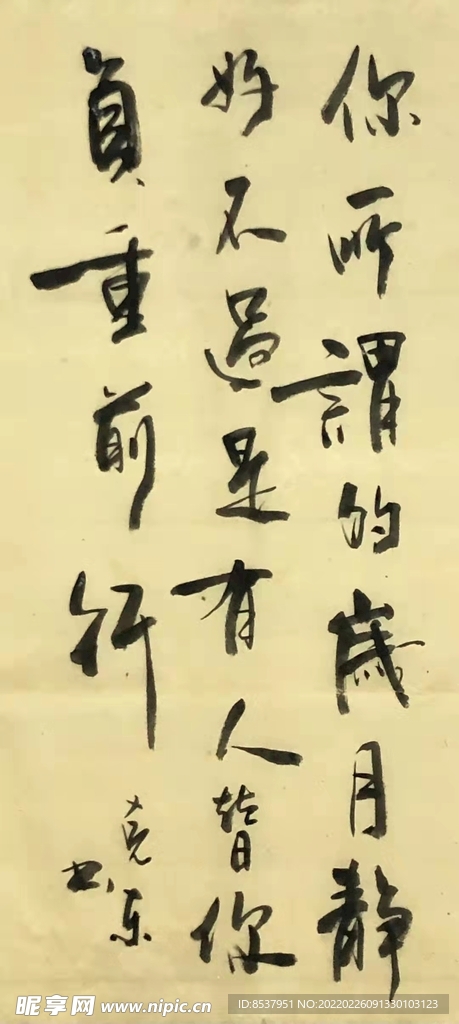 你所謂的歲月靜
好不過是有人替你
負重前行
克东
书
昵享网 www.nipic.cn
ID:8537951 NO:20220226091330103123